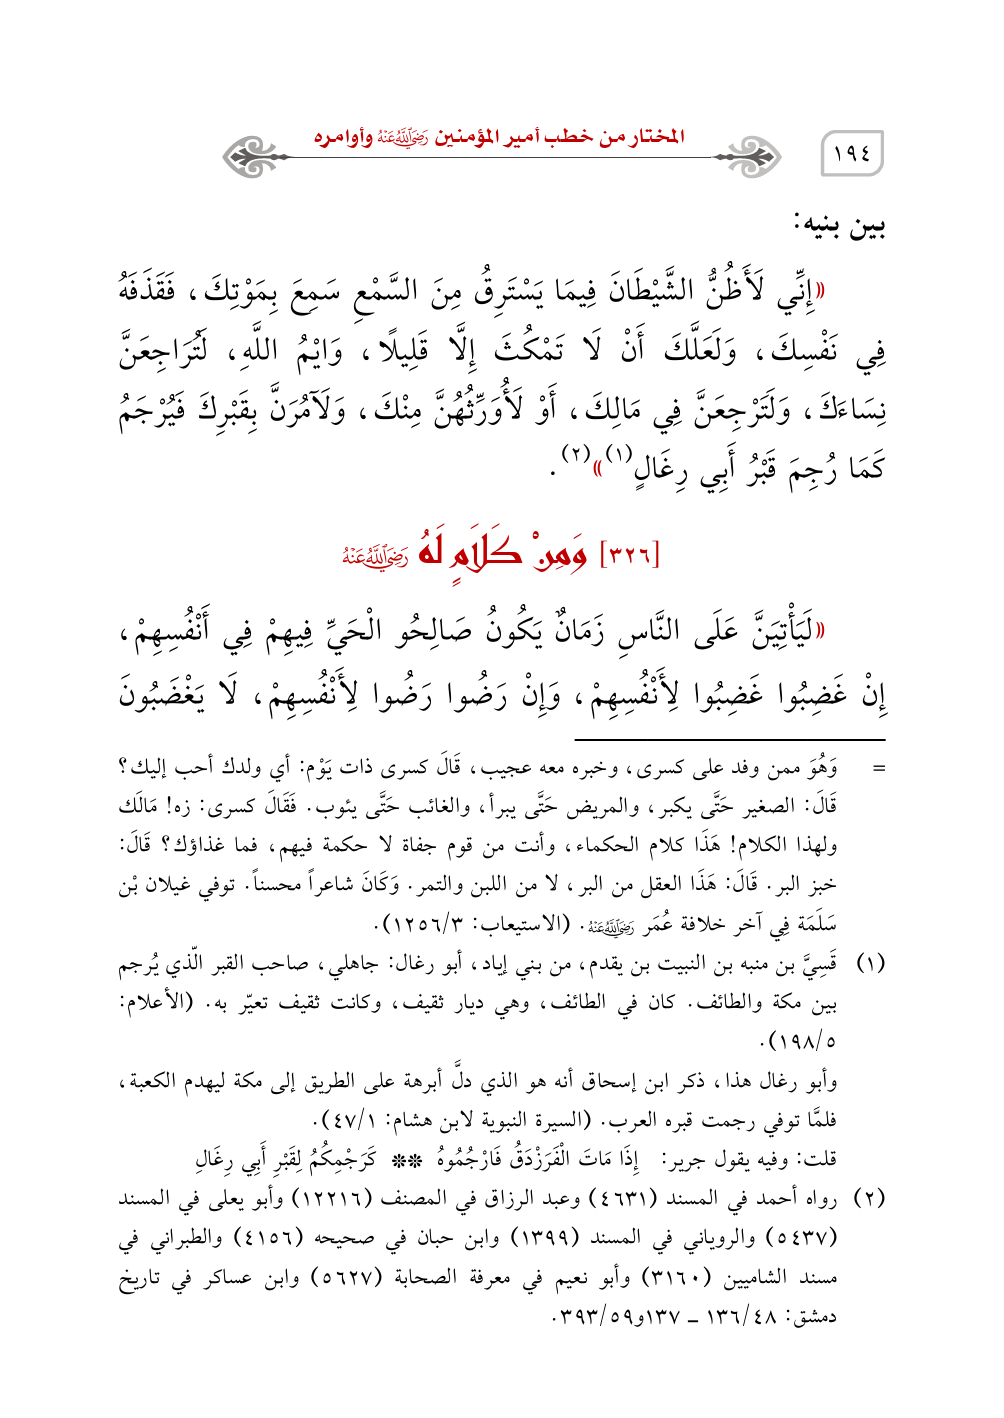 ١٩٤
المختار من خطب أمير المؤمنين رَضِيَ اللَّهُ عَنْهُ وأوامره
بين بنيه:
«إِنِّي لَأَظُنُّ الشَّيْطَانَ فِيمَا يَسْتَرِقُ مِنَ السَّمْعِ سَمِعَ بِمَوْتِكَ، فَقَذَفَهُ
فِي نَفْسِكَ، وَلَعَلَّكَ أَنْ لَا تَمْكُثَ إِلَّا قَلِيلًا، وَايْمُ اللَّهِ، لَتُرَاجِعَنَّ
نِسَاءَكَ، وَلَتَرْجِعَنَّ فِي مَالِكَ، أَوْ لَأُوَرِّثُهُنَّ مِنْكَ، وَلَآمُرَنَّ بِقَبْرِكَ فَيُرْجَمُ
كَمَا رُجِمَ قَبْرُ أَبِي رِغَالٍ(١)»(٢).
[٣٢٦] وَمِنْ كَلَامٍ لَهُ رَضِيَ اللَّهُ عَنْهُ
«لَيَأْتِيَنَّ عَلَى النَّاسِ زَمَانٌ يَكُونُ صَالِحُو الْحَيِّ فِيهِمْ فِي أَنْفُسِهِمْ،
إِنْ غَضِبُوا غَضِبُوا لِأَنْفُسِهِمْ، وَإِنْ رَضُوا رَضُوا لِأَنْفُسِهِمْ، لَا يَغْضَبُونَ
= وَهُوَ ممن وفد على كسرى، وخبره معه عجيب، قَالَ كسرى ذات يَوْم: أي ولدك أحب إليك؟
قَالَ: الصغير حَتَّى يكبر، والمريض حَتَّى يبرأ، والغائب حَتَّى يئوب. فَقَالَ كسرى: زه! مَالَك
ولهذا الكلام! هَذَا كلام الحكماء، وأنت من قوم جفاة لا حكمة فيهم، فما غذاؤك؟ قَالَ:
خبز البر. قَالَ: هَذَا العقل من البر، لا من اللبن والتمر. وَكَانَ شاعراً محسناً. توفي غيلان بْن
سَلَمَة فِي آخر خلافة عُمَر رَضِيَ اللَّهُ عَنْهُ. (الاستيعاب: ١٢٥٦/٣).
(١) قَسِيَّ بن منبه بن النبيت بن يقدم، من بني إياد، أبو رغال: جاهلي، صاحب القبر الّذي يُرجم
بين مكة والطائف. كان في الطائف، وهي ديار ثقيف، وكانت ثقيف تعيّر به. (الأعلام:
١٩٨/٥).
وأبو رغال هذا، ذكر ابن إسحاق أنه هو الذي دلَّ أبرهة على الطريق إلى مكة ليهدم الكعبة،
فلمَّا توفي رجمت قبره العرب. (السيرة النبوية لابن هشام: ٤٧/١).
قلت: وفيه يقول جرير: إِذَا مَاتَ الْفَرَزْدَقُ فَارْجُمُوهُ ** كَرَجْمِكُمُ لِقَبْرِ أَبِي رِغَالِ
(٢) رواه أحمد في المسند (٤٦٣١) وعبد الرزاق في المصنف (١٢٢١٦) وأبو يعلى في المسند
(٥٤٣٧) والروياني في المسند (١٣٩٩) وابن حبان في صحيحه (٤١٥٦) والطبراني في
مسند الشاميين (٣١٦٠) وأبو نعيم في معرفة الصحابة (٥٦٢٧) وابن عساكر في تاريخ
دمشق: ١٣٦/٤٨ ــ ١٣٧و٣٩٣/٥٩.